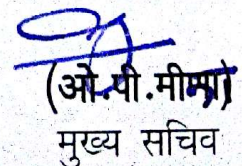 (ओ.पी.मीणा)
मुख्य सचिव